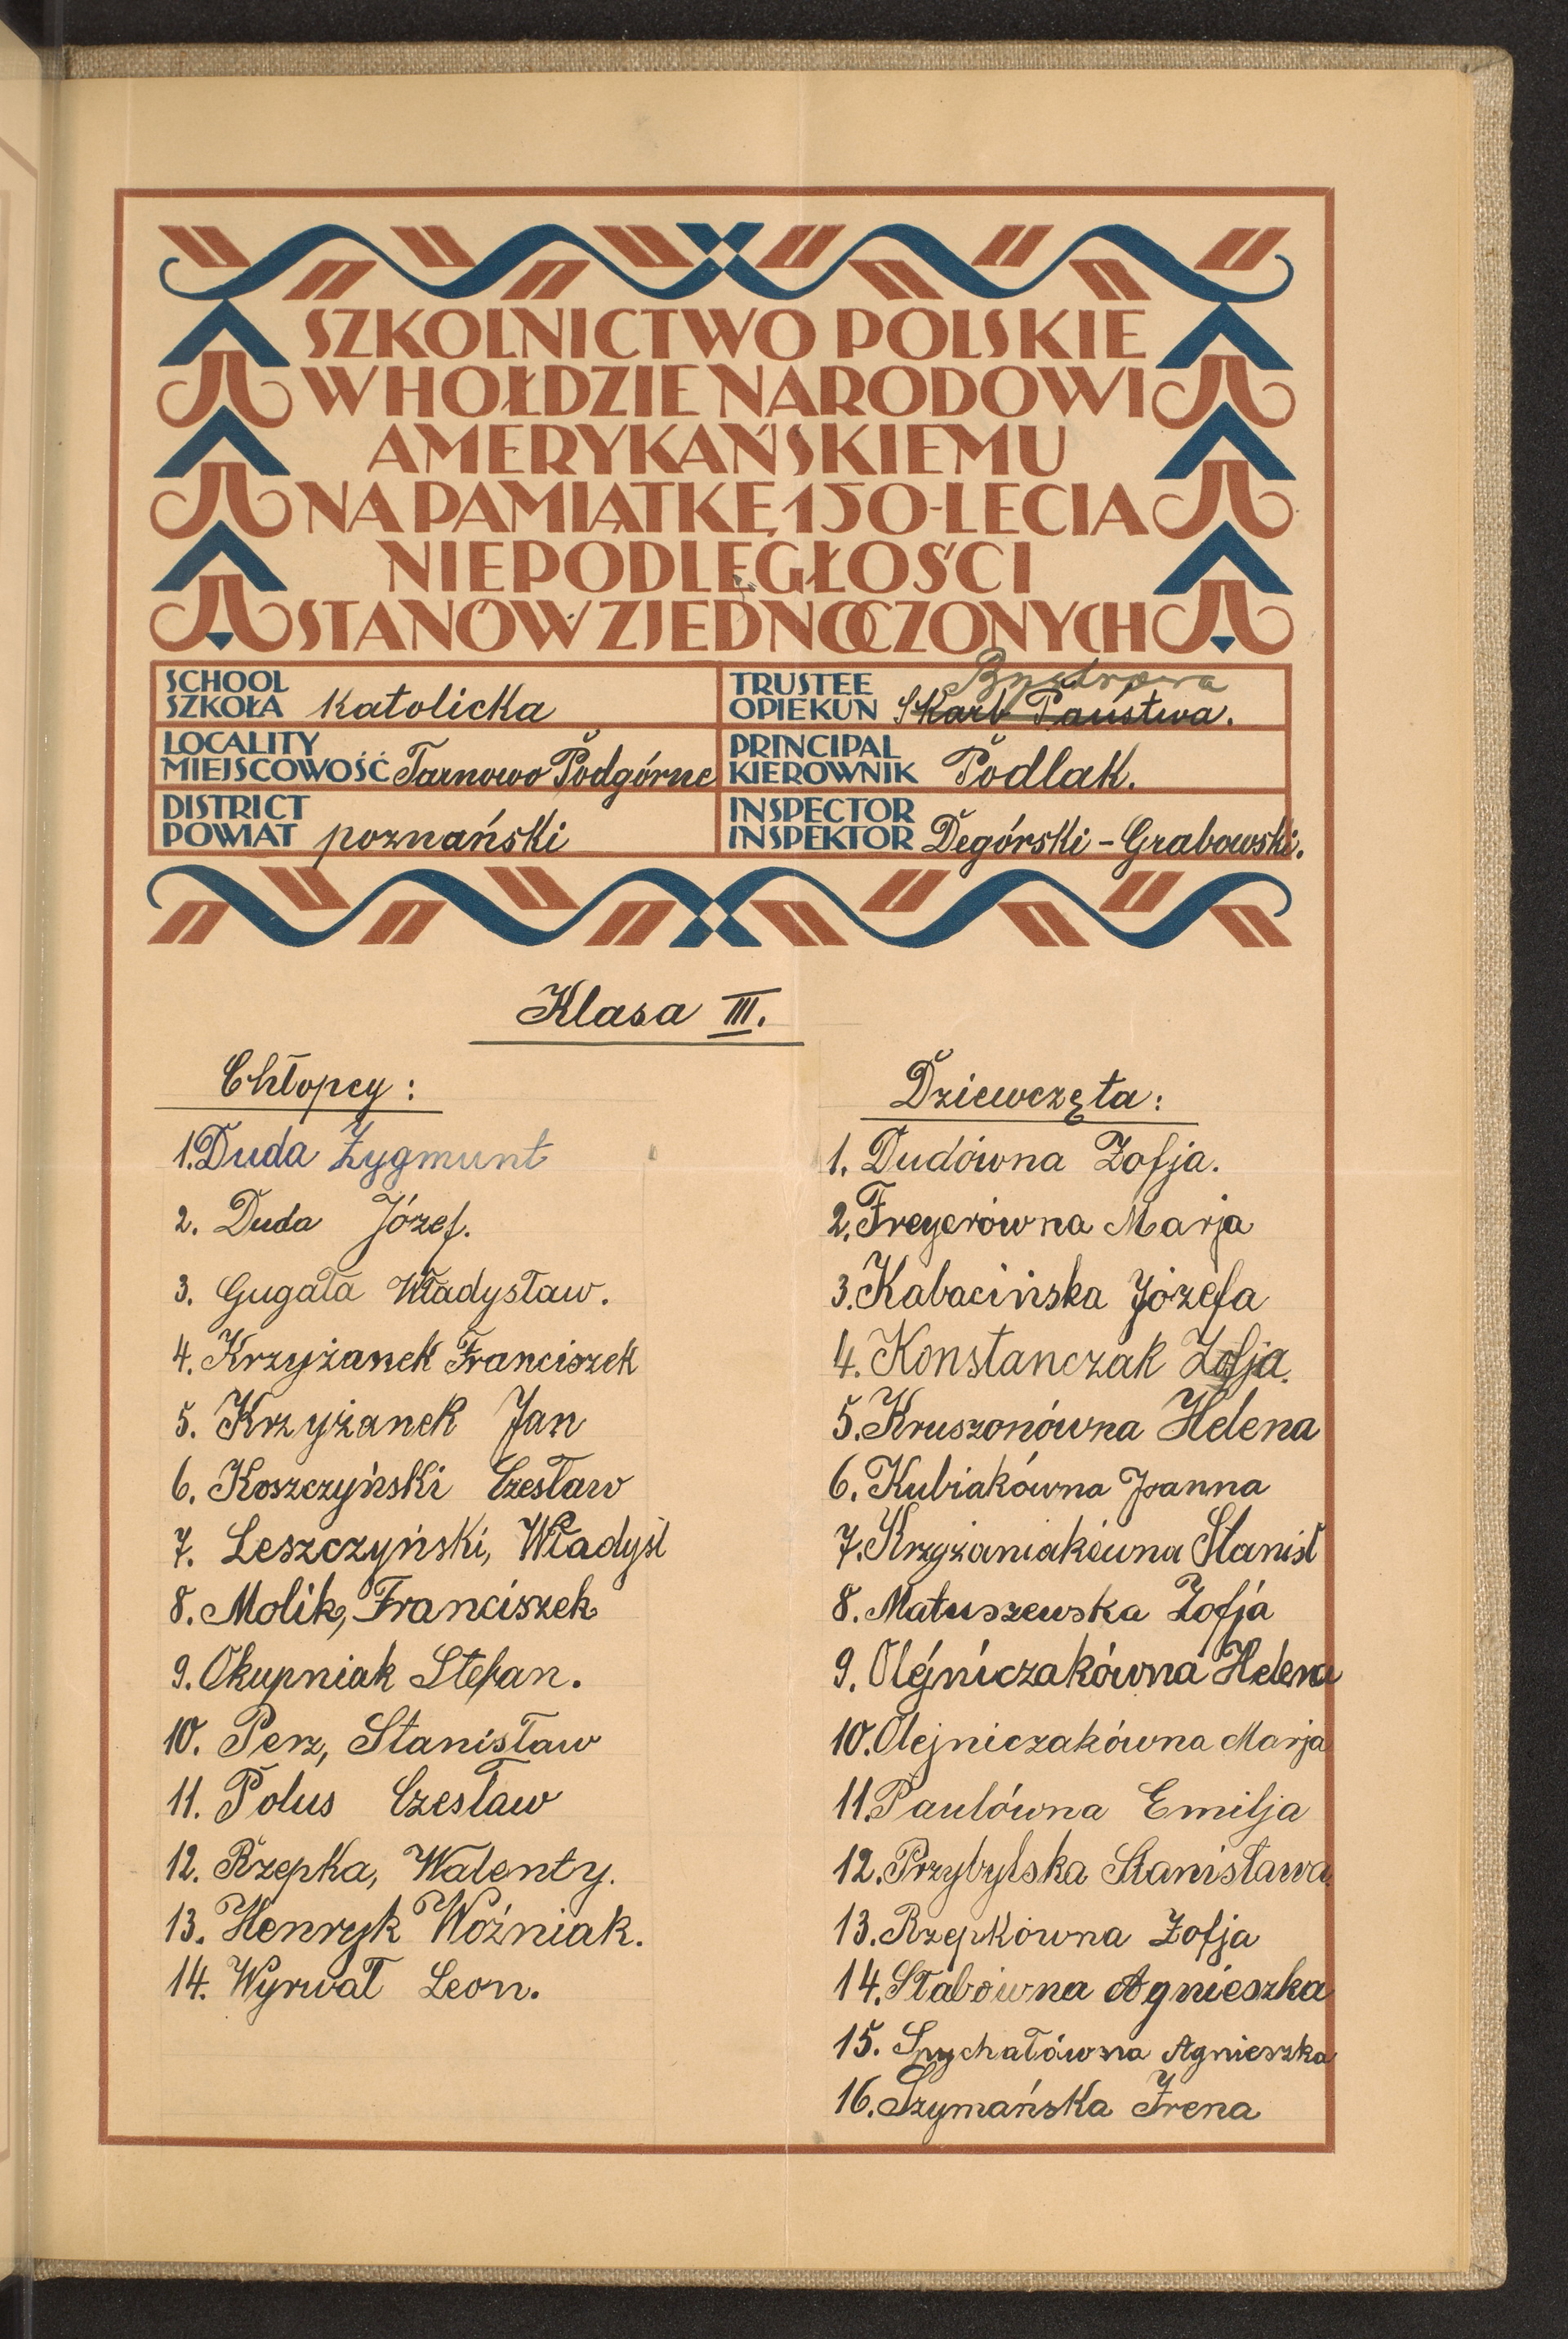 SZKOLNICTWO POLSKIE
W HOŁDZIE NARODOWI
AMERYKAŃSKIEMU
NA PAMIĄTKĘ 150-LECIA
NIEPODLEGŁOŚCI
STANÓW ZJEDNOCZONYCH
SCHOOL
SZKOŁA Katolicka
TRUSTEE
OPIEKUN Skarb Państwa.
LOCALITY
MIEJSCOWOŚĆ Tarnowo Podgórne
PRINCIPAL
KIEROWNIK Podlak.
DISTRICT
POWIAT poznański
INSPECTOR
INSPEKTOR Degórski - Grabowski.
Klasa III.
Chłopcy:
1. Duda Zygmunt
2. Duda Józef.
3. Gugała Władysław.
4. Krzyżanek Franciszek
5. Krzyżanek Jan
6. Koszczyński Czesław
7. Leszczyński, Władysł
8. Molik, Franciszek
9. Okupniak Stefan.
10. Perz, Stanisław
11. Polus Czesław
12. Rzepka, Walenty.
13. Henryk Woźniak.
14. Wyrwał Leon.
Dziewczęta:
1. Dudówna Zofja.
2. Freyerówna Marja
3. Kabacińska Józefa
4. Konstanczak Zofja.
5. Kruszonówna Helena
6. Kubiakówna Joanna
7. Krzyżaniakówna Stanisł
8. Matuszewska Zofja
9. Olejniczakówna Helena
10. Olejniczakówna Marja
11. Paulówna Emilja
12. Przybylska Stanisława.
13. Rzepkówna Zofja
14. Słabówna Agnieszka
15. Spychałówna Agnieszka
16. Szymańska Irena